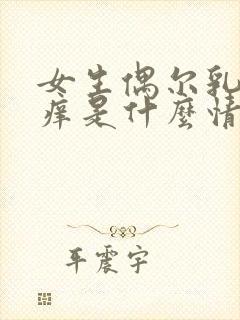 女生偶尔乳
痒是什麼情
平震宇